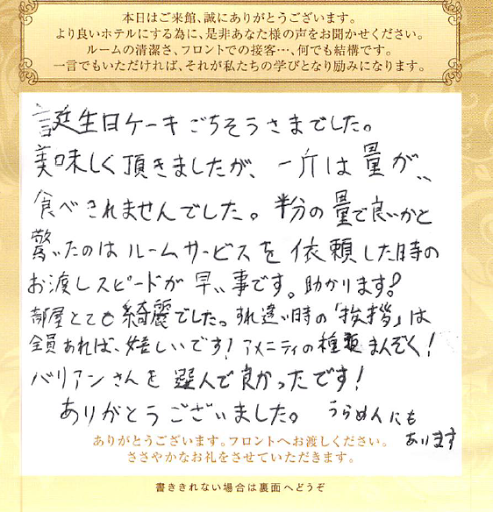 本日はご来館、誠にありがとうございます。
より良いホテルにする為に、是非あなた様の声をお聞かせください。
ルームの清潔さ、フロントでの接客…、何でも結構です。
一言でもいただければ、それが私たちの学びとなり励みになります。
誕生日ケーキごちそうさまでした。
美味しく頂きましたが、一介は量が、、
食べきれませんでした。半分の量で良いかと
驚いたのはルームサービスを依頼した時の
お渡しスピードが早い事です。助かります!
部屋とても綺麗でした。すれ違い時の「挨拶」は
全員あれば、嬉しいです!アメニティの種類まんぞく!
バリアンさんを選んで良かったです!
ありがとうございました。うらめんにも
あります
ありがとうございます。フロントへお渡しください。
ささやかなお礼をさせていただきます。
書ききれない場合は裏面へどうぞ